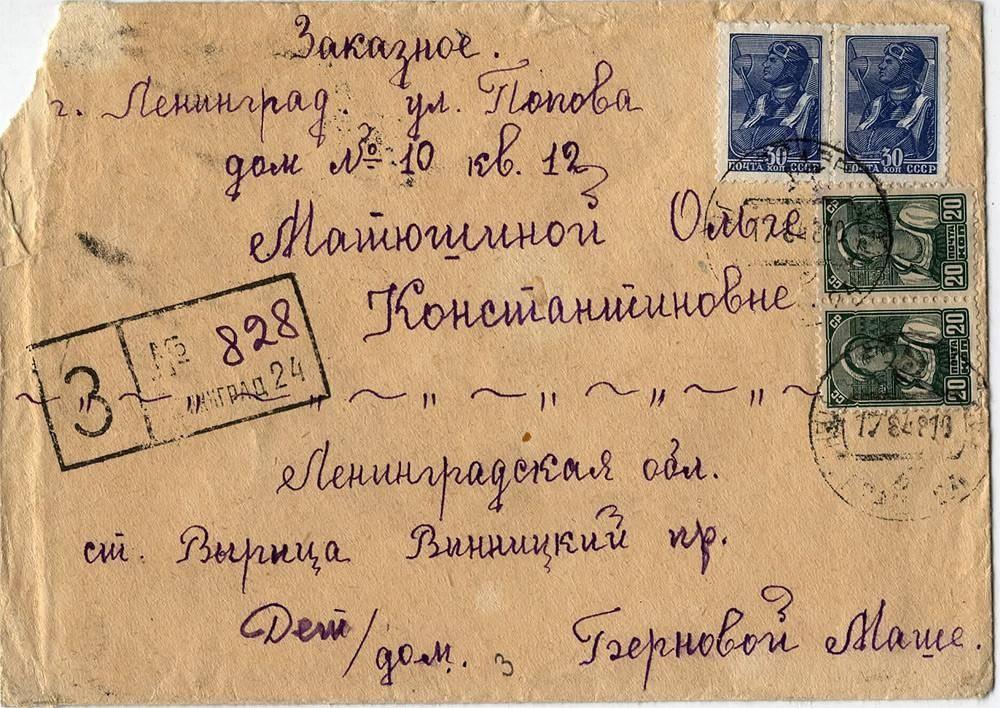 Заказное.
г. Ленинград ул. Попова
дом № 10 кв. 12
Матюшиной Ольге
Константиновне.
З № 828
24
~ „ ~ „ ~ „ ~ „ ~ „ ~ „ ~
Ленинградская обл.
ст. Вырица Винницкий пр.
Дет/дом. 3 Берновой Маше.
30
ПОЧТА КОП СССР
30
ПОЧТА КОП СССР
ПОЧТА 20 КОП.
ПОЧТА 20 КОП.